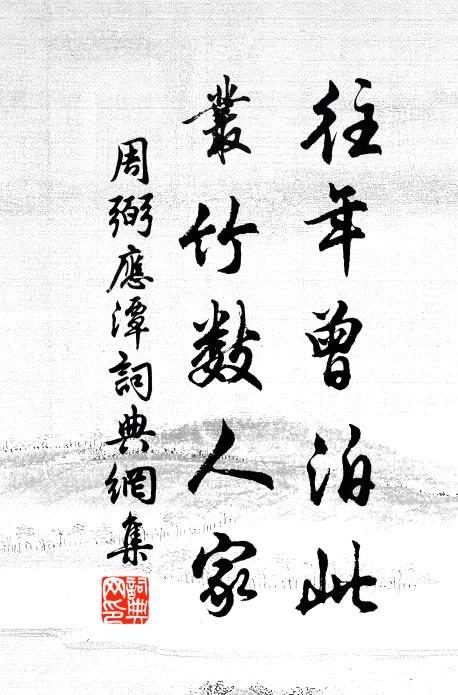 往年曾泊此
叢竹數人家
周弼應潭詞典網集
詞典網印